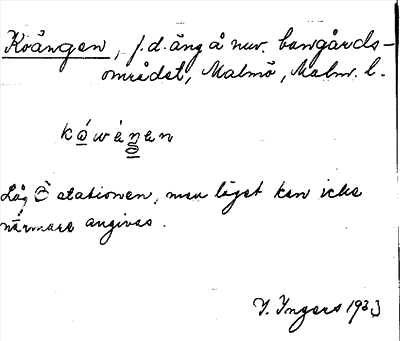 Koängen, f.d. äng å nuv. bangårds-
området, Malmö, Malm. l.
kówèŋen
Låg Ö stationen, men läget kan icke
närmare angivas.
I. Ingers 1933